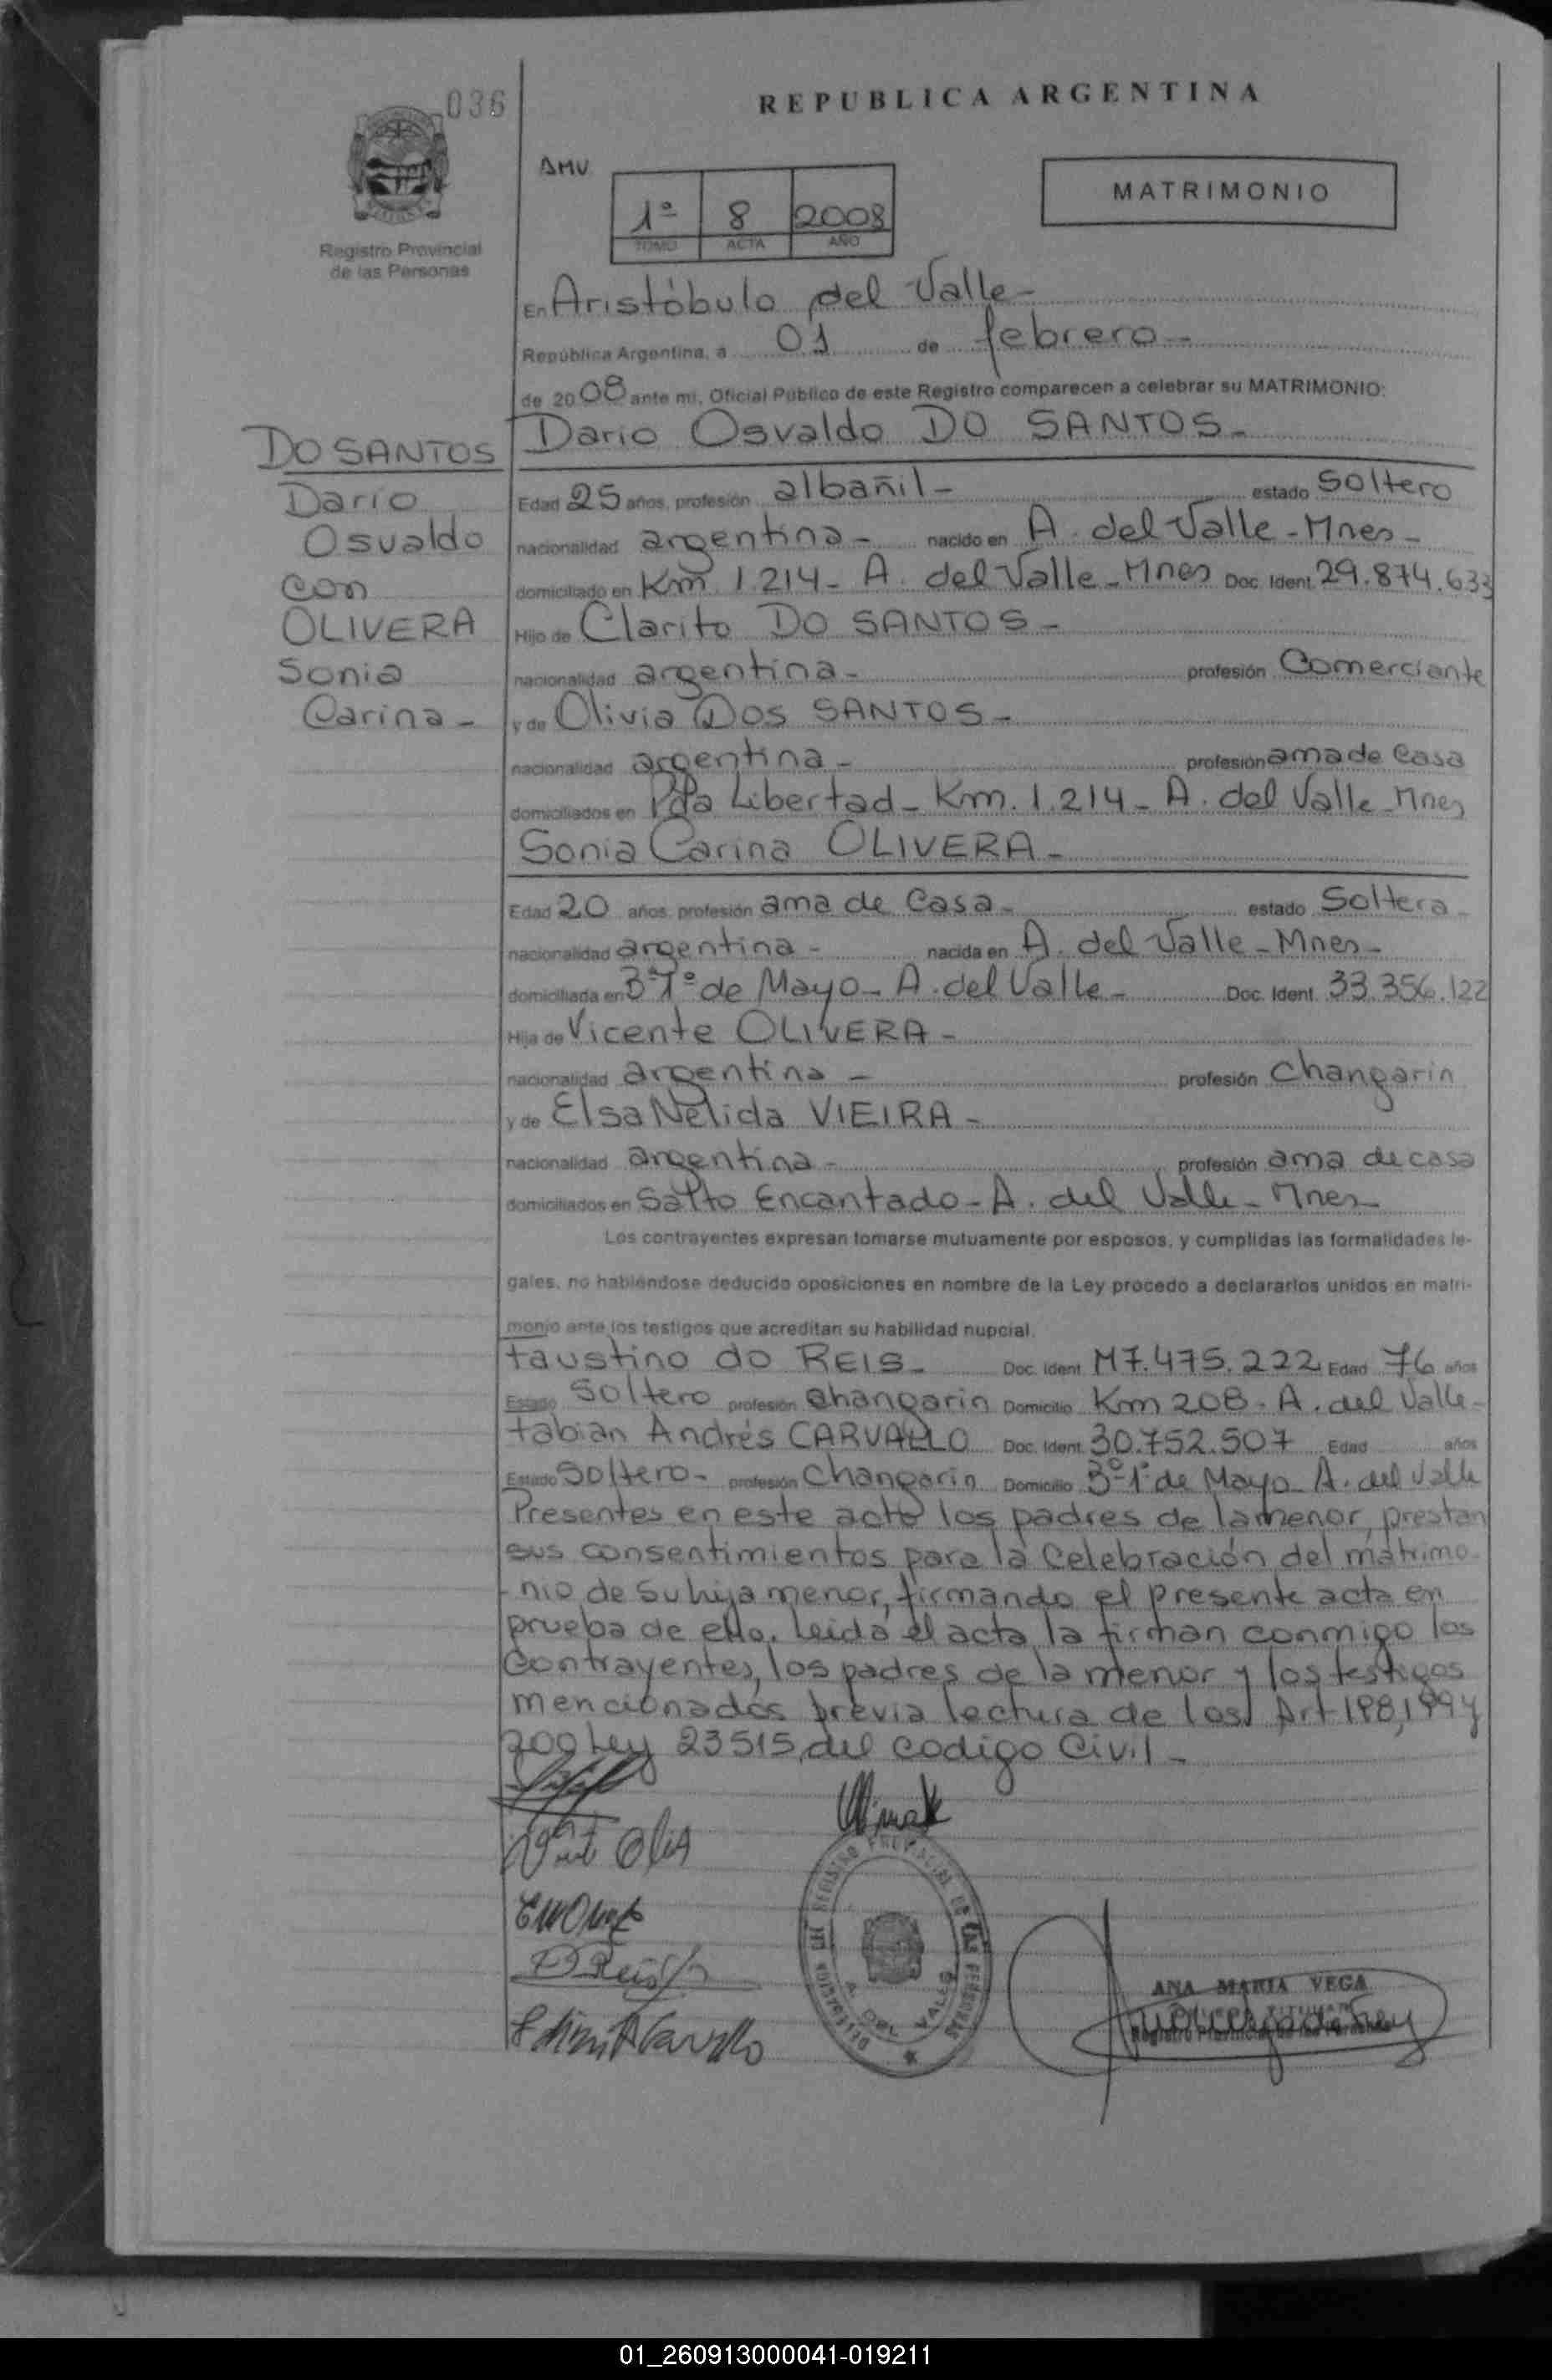 036
REPUBLICA ARGENTINA
AMV
1ª 8 2008
TOMO ACTA AÑO
MATRIMONIO
Registro Provincial
de las Personas
En Aristóbulo del Valle -
República Argentina, a 01 de febrero -
de 2008 ante mi, Oficial Público de este Registro comparecen a celebrar su MATRIMONIO:
Dario Osvaldo DO SANTOS -
DO SANTOS
Dario
Osvaldo
con
OLIVERA
Sonia
Carina -
Edad 25 años, profesión albañil - estado Soltero
nacionalidad argentina - nacido en A. del Valle - Mnes -
domiciliado en Km 1.214 - A. del Valle - Mnes Doc. Ident. 29.874.633
Hijo de Clarito DO SANTOS -
nacionalidad argentina - profesión Comerciante
y de Olivia DOS SANTOS -
nacionalidad argentina - profesión ama de Casa
domiciliados en Pda Libertad - Km. 1.214 - A. del Valle - Mnes
Sonia Carina OLIVERA -
Edad 20 años, profesión ama de Casa - estado Soltera -
nacionalidad argentina - nacida en A. del Valle - Mnes -
domiciliada en Bº 1º de Mayo - A. del Valle - Doc. Ident. 33.356.122
Hija de Vicente OLIVERA -
nacionalidad argentina - profesión Changarin
y de Elsa Nelida VIEIRA -
nacionalidad argentina - profesión ama de casa
domiciliados en Salto Encantado - A. del Valle - Mnes -
Los contrayentes expresan tomarse mutuamente por esposos, y cumplidas las formalidades le-
gales, no habiéndose deducido oposiciones en nombre de la Ley procedo a declararlos unidos en matri-
monio ante los testigos que acreditan su habilidad nupcial.
Faustino do REIS - Doc. Ident M7.475.222 Edad 76 años
Estado Soltero profesión Changarin Domicilio Km 208 - A. del Valle -
Fabian Andrés CARVALLO Doc. Ident. 30.752.507 Edad años
Estado Soltero - profesión Changarin Domicilio Bº 1º de Mayo A. del Valle
Presentes en este acto los padres de la menor, prestan
sus consentimientos para la Celebración del matrimo-
- nio de su hija menor, firmando el presente acta en
prueba de ello. Leida el acta la firman conmigo los
Contrayentes, los padres de la menor y los testigos
mencionados previa lectura de los Art 198, 199 y
200 Ley 23515 del codigo Civil -
DELEGACION DEL REGISTRO PROVINCIAL DE LAS PERSONAS
A. DEL VALLE
ANA MARIA VEGA
Registro Provincial de las Personas
01_260913000041-019211